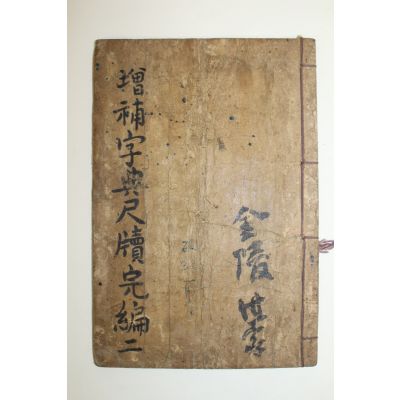 增補字典尺牘完編二
金陵